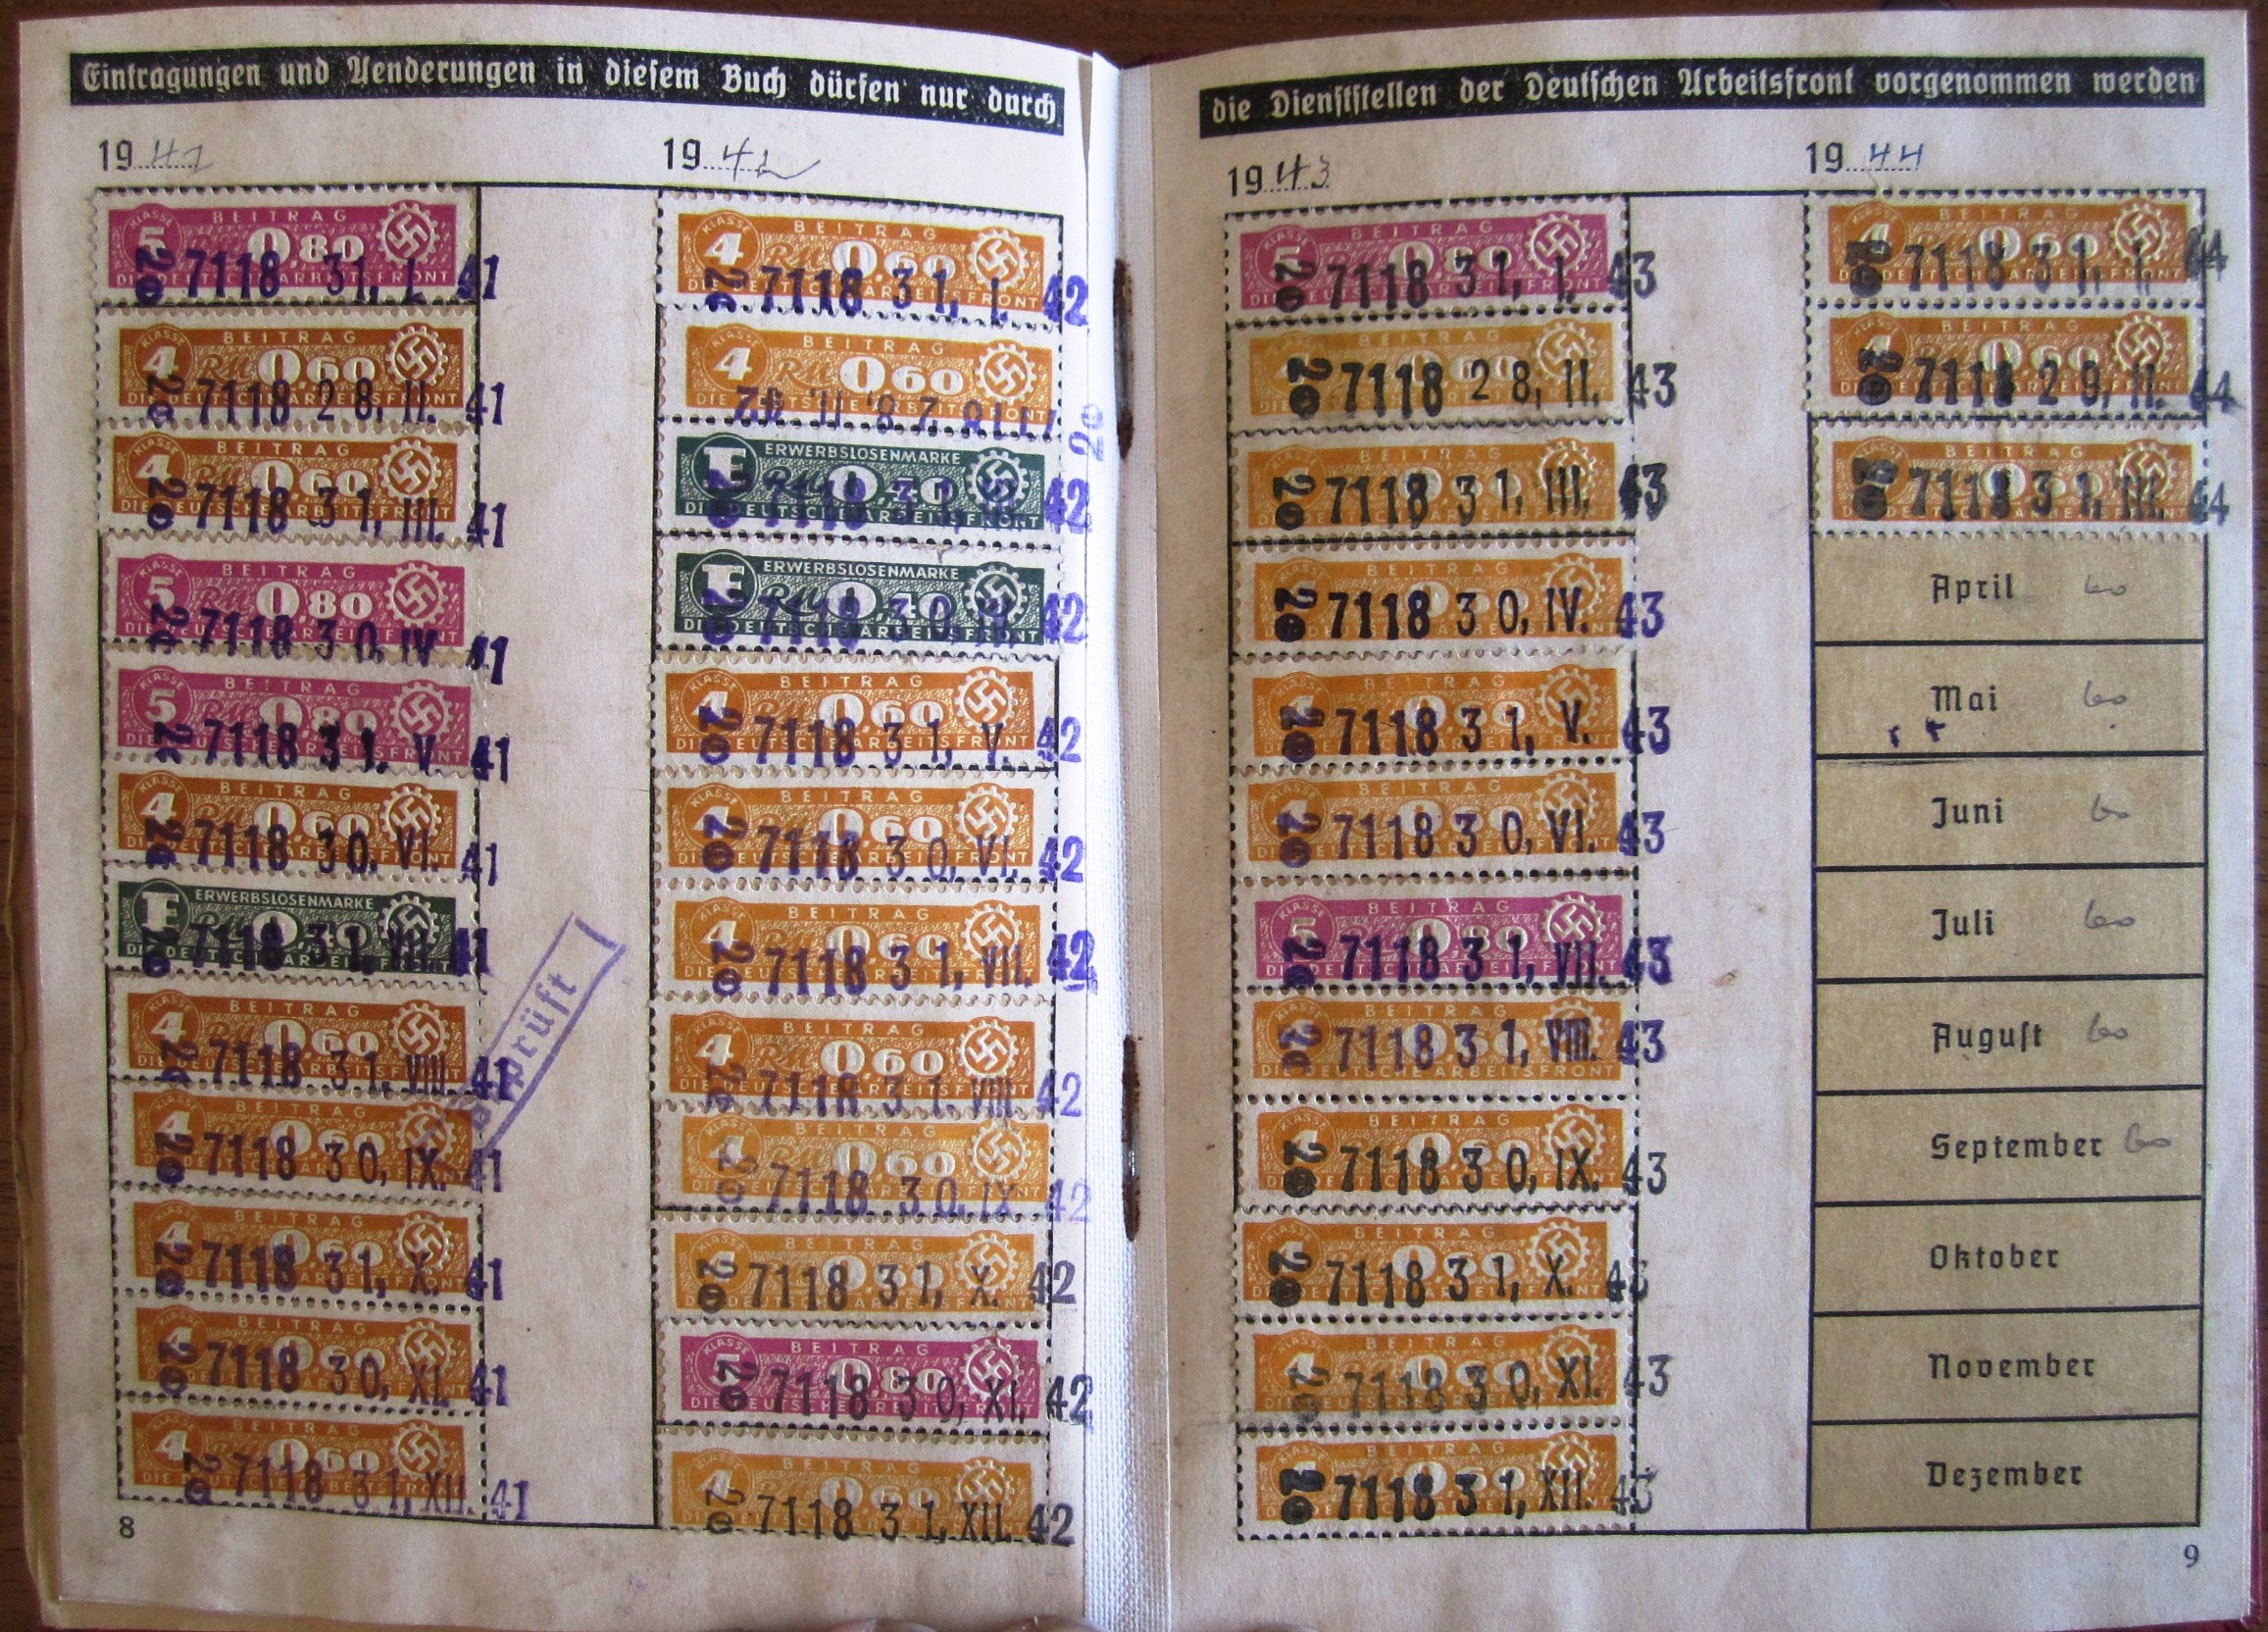 Eintragungen und Aenderungen in diesem Buch dürfen nur durch
die Dienststellen der Deutschen Arbeitsfront vorgenommen werden
1941
KLASSE 5 BEITRAG 0,80
DIE DEUTSCHE ARBEITSFRONT
7118 31, I. 41
KLASSE 4 BEITRAG RM 0,60
7118 28, II. 41
KLASSE 4 BEITRAG RM 0,60
DIE DEUTSCHE ARBEITSFRONT
7118 31, III. 41
KLASSE 5 BEITRAG RM 0,80
DIE DEUTSCHE ARBEITSFRONT
7118 30, IV 41
KLASSE 5 BEITRAG 0,80
DIE DEUTSCHE ARBEITSFRONT
7118 31. V. 41
KLASSE 4 BEITRAG RM 0,60
DIE DEUTSCHE ARBEITSFRONT
7118 30, VI. 41
E ERWERBSLOSENMARKE
DIE DEUTSCHE ARBEITSFRONT
7118 31, VII 41
KLASSE 4 BEITRAG 0,60
DIE DEUTSCHE ARBEITSFRONT
7118 31. VIII. 41
prüft
4 BEITRAG 0,60
7118 30, IX. 41
4 BEITRAG 0,60
7118 31, X. 41
4 BEITRAG 0,60
7118 30, XI. 41
4 BEITRAG RM 0,60
DIE DEUTSCHE ARBEITSFRONT
7118 31, XII. 41
8
1942
KLASSE 4 BEITRAG RM 0,60
DIE DEUTSCHE ARBEITSFRONT
7118 31, I. 42
KLASSE 4 BEITRAG RM 0,60
DIE DEUTSCHE ARBEITSFRONT
E ERWERBSLOSENMARKE
RM 0,40
DIE DEUTSCHE ARBEITSFRONT
7118 31 42
E ERWERBSLOSENMARKE
RM 0,40
DIE DEUTSCHE ARBEITSFRONT
7118 30 42
KLASSE 4 BEITRAG RM 0,60
DIE DEUTSCHE ARBEITSFRONT
7118 31, V. 42
KLASSE 4 BEITRAG 0,60
DIE DEUTSCHE ARBEITSFRONT
7118 30, VI. 42
KLASSE 4 BEITRAG RM 0,60
DIE DEUTSCHE ARBEITSFRONT
7118 31, VII. 42
KLASSE 4 BEITRAG RM 0,60
DIE DEUTSCHE ARBEITSFRONT
7118 31. VIII 42
4 BEITRAG RM 0,60
7118 30. IX 42
4 BEITRAG 0,60
7118 31, X. 42
KLASSE 5 BEITRAG 0,80
DIE DEUTSCHE ARBEITSFRONT
7118 30, XI. 42
KLASSE 4 BEITRAG 0,60
7118 31, XII. 42
1943
KLASSE 5 BEITRAG 0,80
DIE DEUTSCHE ARBEITSFRONT
7118 31, I. 43
BEITRAG 0,60
7118 28, II. 43
BEITRAG
7118 31, III. 43
BEITRAG
7118 30, IV. 43
KLASSE 4 BEITRAG
7118 31, V. 43
KLASSE 4 BEITRAG
7118 30, VI. 43
KLASSE 5 BEITRAG 0,80
DIE DEUTSCHE ARBEITSFRONT
7118 31, VII. 43
KLASSE BEITRAG
DIE DEUTSCHE ARBEITSFRONT
7118 31, VIII. 43
4 BEITRAG
7118 30, IX. 43
4 BEITRAG
7118 31, X. 43
4 BEITRAG
7118 30, XI. 43
4 BEITRAG
7118 31, XII. 43
1944
4 BEITRAG 0,60
7118 31, I. 44
KLASSE 4 BEITRAG 0,60
7118 29, II. 44
BEITRAG
7118 31, III. 44
April 60
Mai 60
Juni 60
Juli 60
August 60
September 60
Oktober
November
Dezember
9